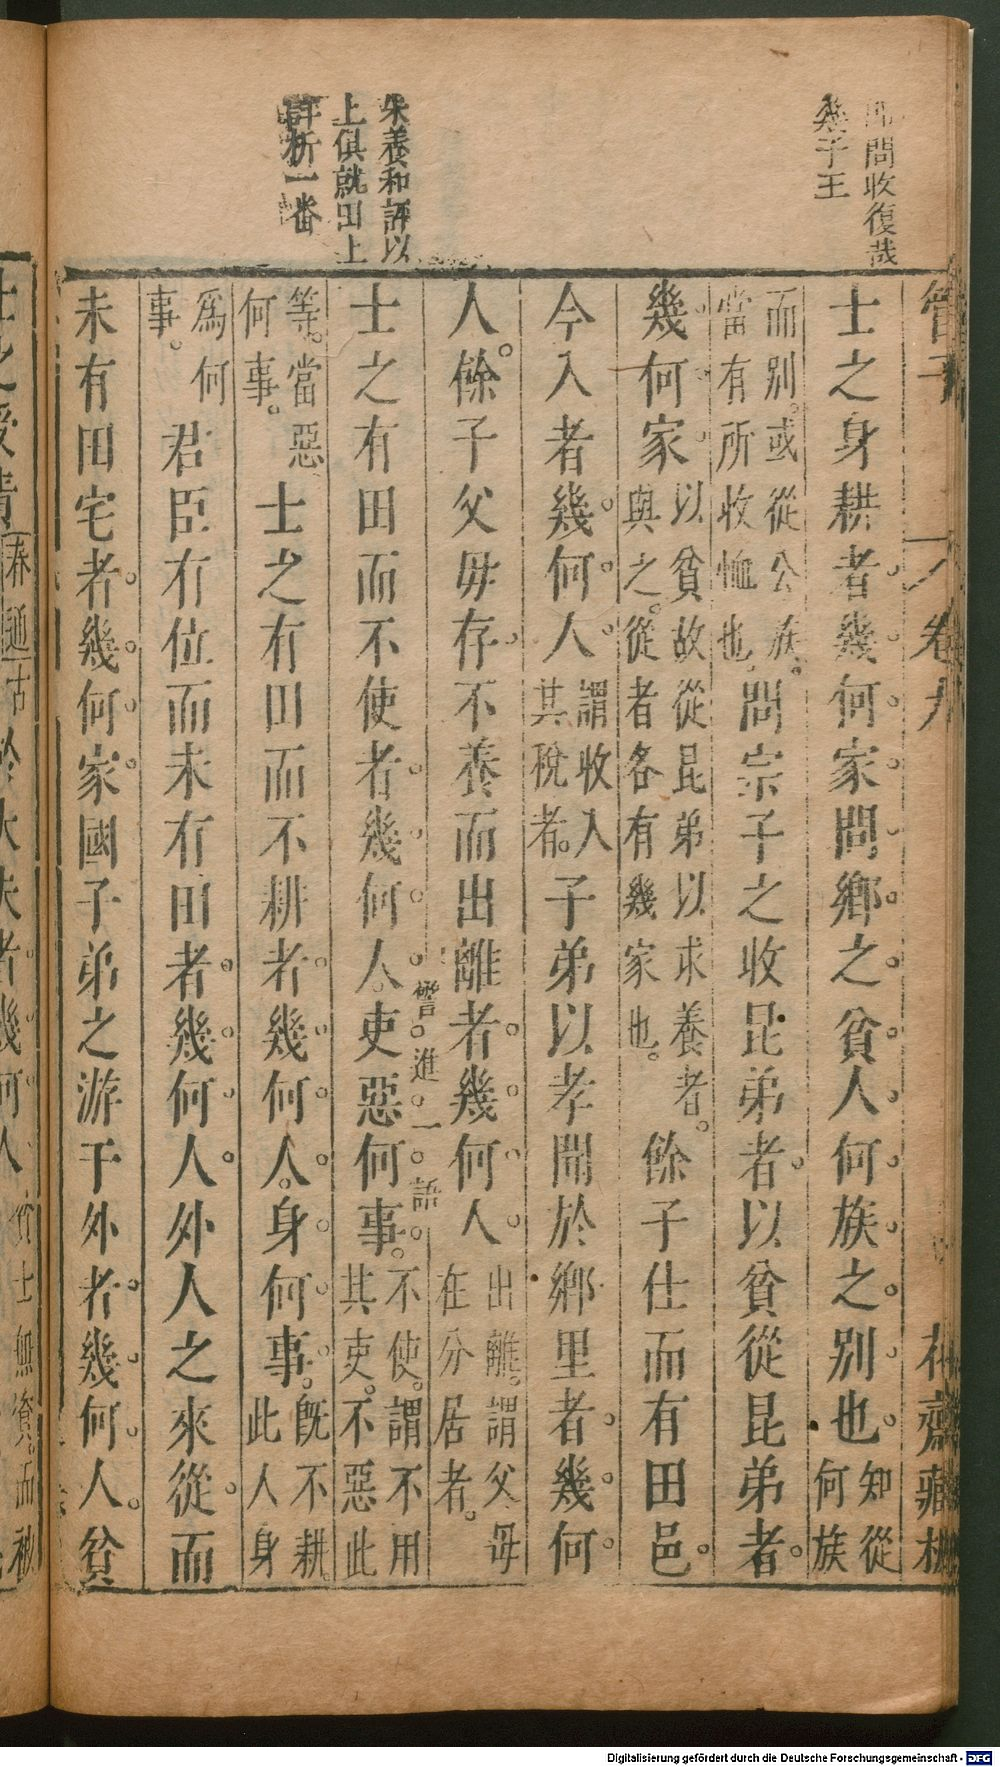 問收復哉
幾子王
朱養和評以
上俱就田上
評析一番
管子
卷九
花齋藏板
士之身耕者幾何家問鄉之貧人何族之別也知從何族
而別或從公族當有所收恤也問宗子之收昆弟者以貧從昆弟者
幾何家以貧故從昆弟以求養者與之從者各有幾家也餘子仕而有田邑
今入者幾何人謂收入其稅者子弟以孝聞於鄉里者幾何
人餘子父母存不養而出離者幾何人出離謂父母在分居者
士之有田而不使者幾何人吏惡何事不使謂不用其吏不惡此
警進一語
等當惡何事士之有田而不耕者幾何人身何事既不耕此人身
爲何事君臣有位而未有田者幾何人外人之來從而
未有田宅者幾何家國子弟之游于外者幾何人貧
士之受責
於大夫者幾何人
士無資而
Digitalisierung gefördert durch die Deutsche Forschungsgemeinschaft - DFG